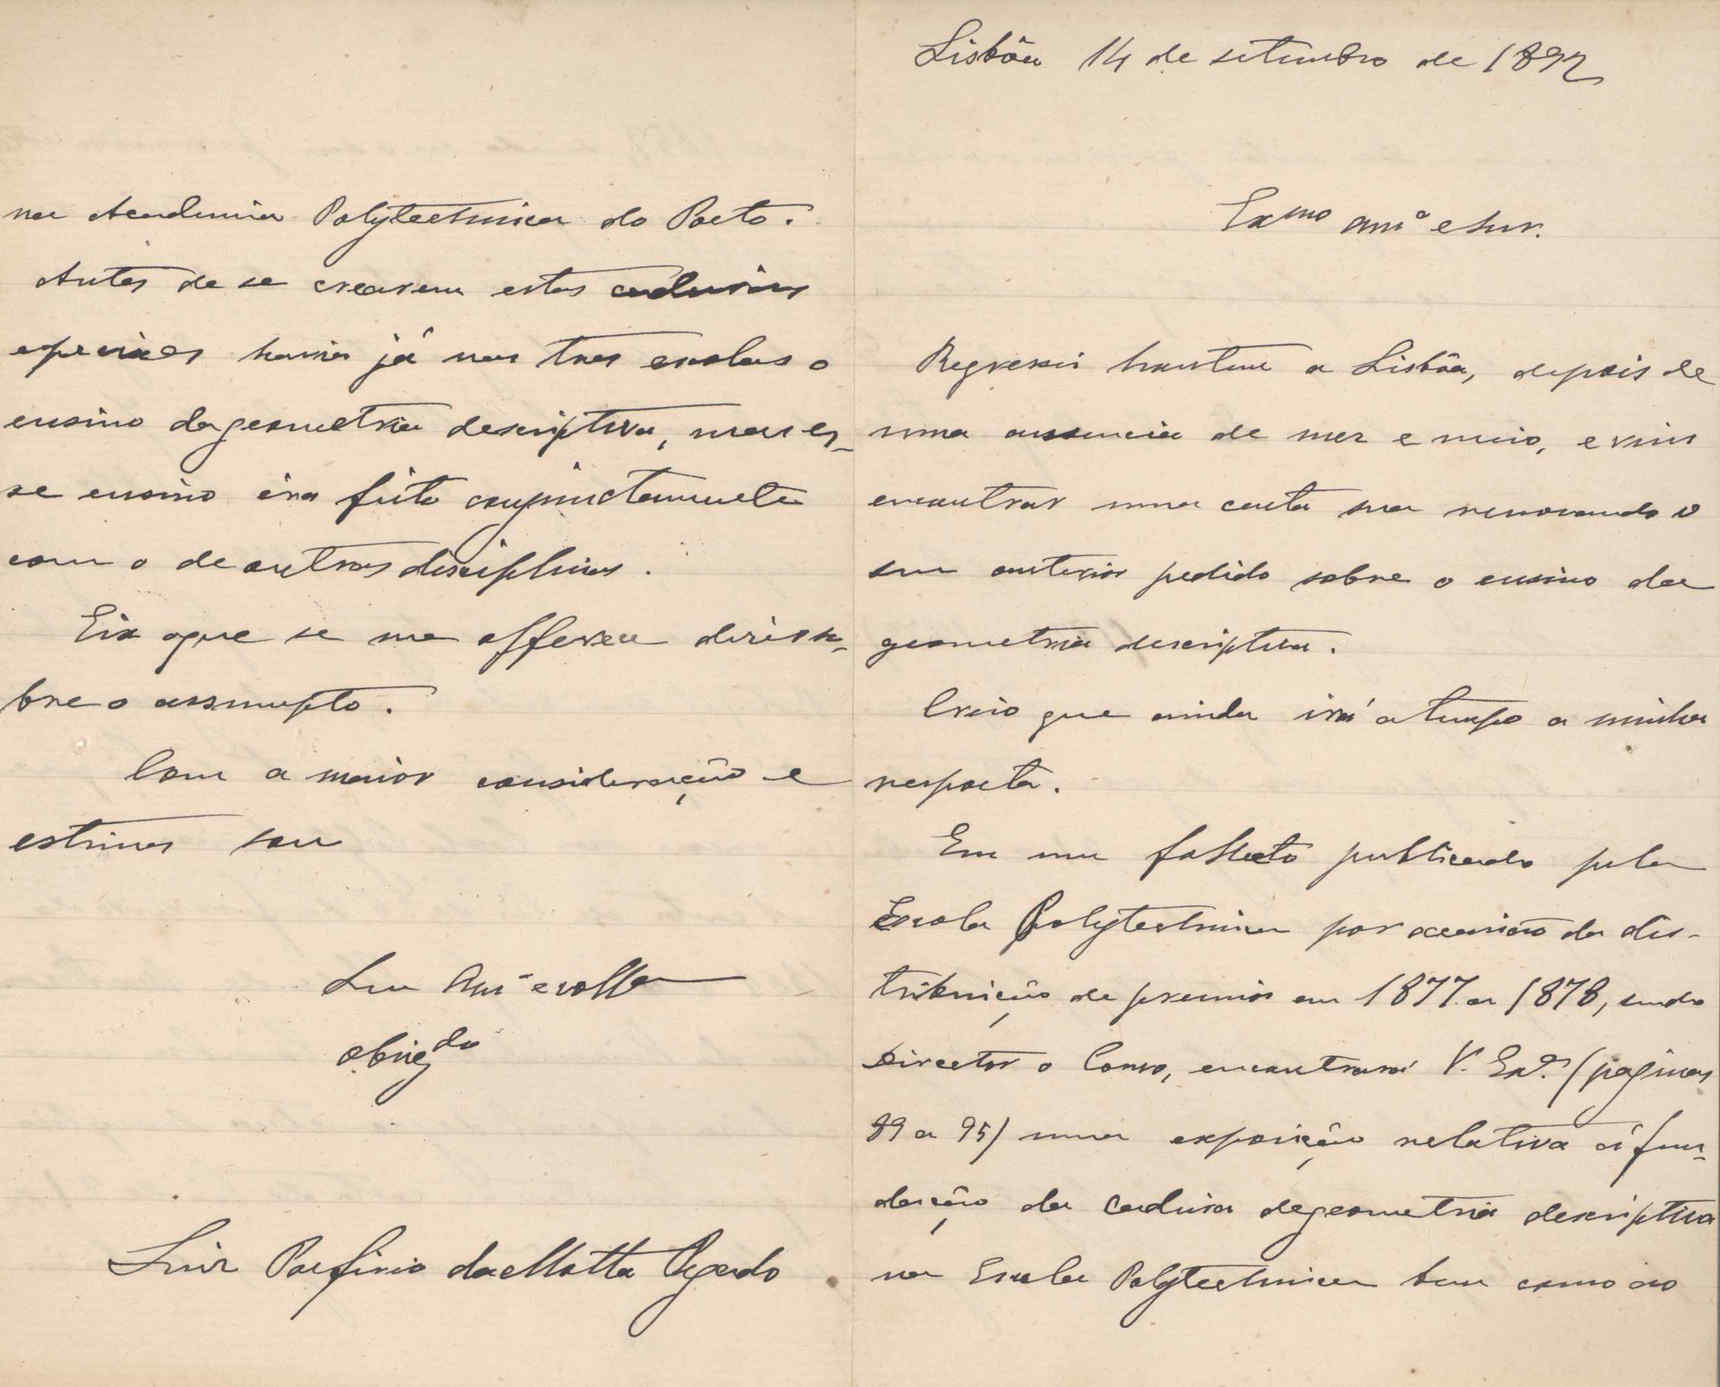 Lisbôa 14 de setembro de 1892
Exmo amº e snr.
Regressei hontem a Lisbôa, depois de
uma ausencia de mez e meio, e vim
encontrar uma carta sua renovando o
seu anterior pedido sobre o ensino da
geometria descriptiva.
Creio que ainda irá a tempo a minha
resposta.
Em um folheto publicado pela
Escola Polytechnica por occasião da dis-
tribuição de premios em 1877 a 1878, sendo
Director o Corvo, encontrará V. Exª. (paginas
89 a 95) uma exposição relativa á fun-
dação da cadeira de geometria descriptiva
na Escola Polytechnica bem como ao
na Academia Polytechnica do Porto.
Antes de se crearem estas cadeiras
especiaes havia já nas tres escolas o
ensino da geometria descriptiva, mas es-
se ensino éra feito conjunctamente
com o de outras disciplinas.
Eis o que se me offerece dizer so-
bre o assumpto.
Com a maior consideração e
estima sou
Seu Amº e collega
obrigdo
Luiz Porfirio da Motta Pegado